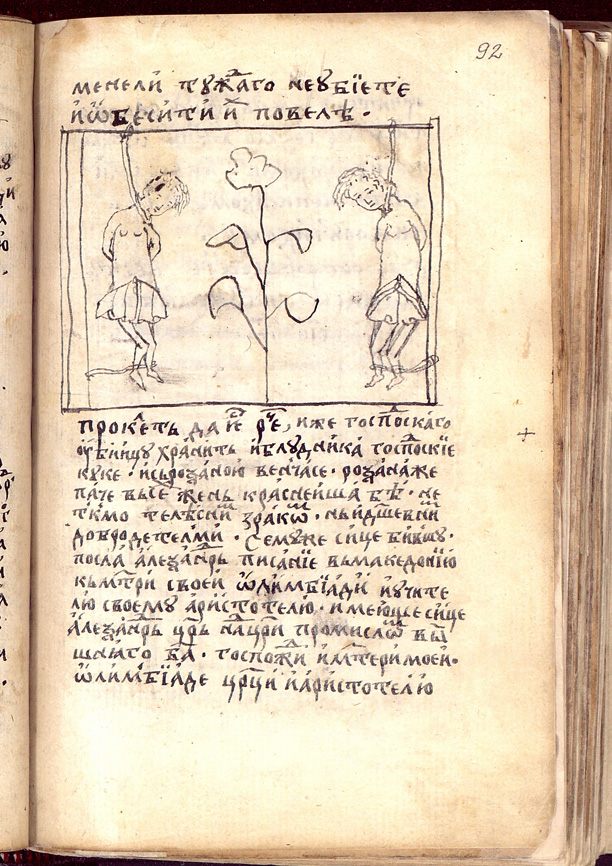 92
менели тꙋжⷣаго неꙋбїете
и ѡбесити и҆ повелѣ ·
проклⷮеть да є҆ⷭ҇ рⷱ҇е, иже господⷭ҇каго
ꙋбїицꙋ хранить и блꙋдника госпоⷭ҇скїе
кꙋке · и сьрозаною венчасе · розанаже
паче высе жень краснейша бѣ · не
ткмо телⷭ҇ѣсни зракѡⷨ · нь и дш҃евни
добродетелми · Семꙋже сице бившꙋ ·
посла але҆ѯан҆дрь писанїе вьмакедонїю
кьмт҃ри своей ѡ҆лимбїади и ꙋчите
лю своемꙋ а҆ристотелю · имеющесице
але҆ѯан҆дрь цр҃ь наⷣцр҃и промисло҆ⷨ ви
шнꙗго ба҃ · госпожⷣи и мт҃ери моей ·
ѡ҆лимбїаде цр҃ци и҆ аристотелю